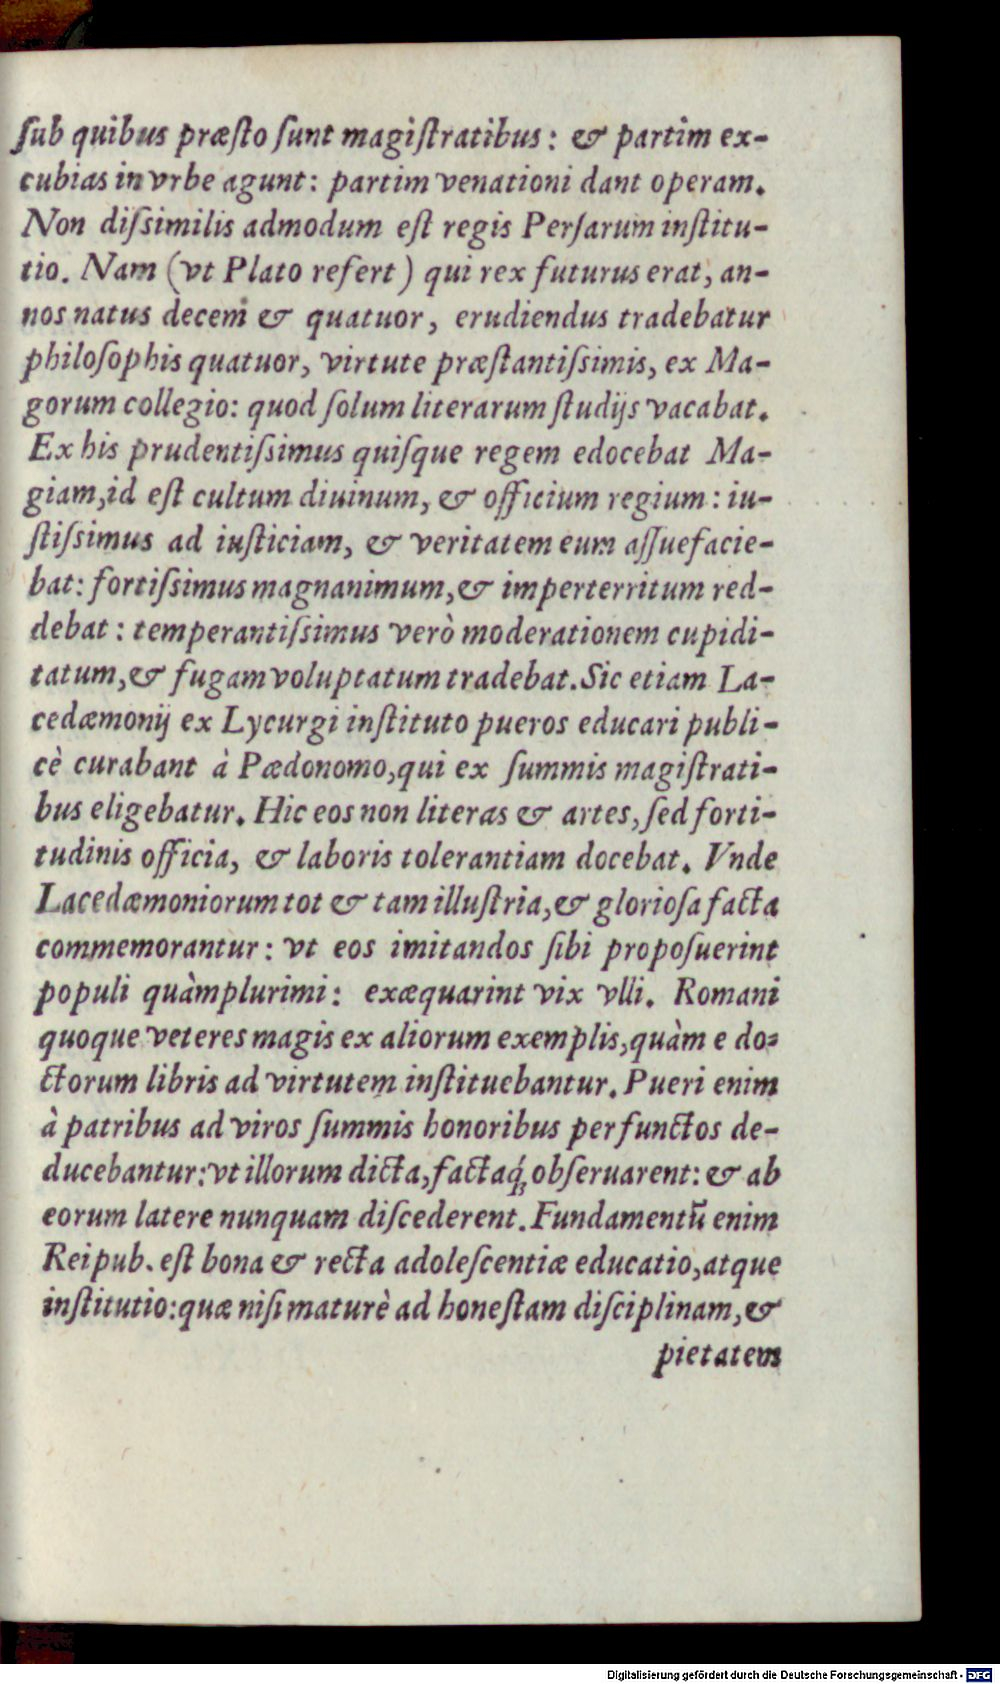 ſub quibus præſto ſunt magiſtratibus: & partim ex-
cubias in vrbe agunt: partim venationi dant operam.
Non diſsimilis admodum eſt regis Perſarum inſtitu-
tio. Nam (vt Plato refert) qui rex futurus erat, an-
nos natus decem & quatuor, erudiendus tradebatur
philoſophis quatuor, virtute præſtantiſsimis, ex Ma-
gorum collegio: quod ſolum literarum ſtudijs vacabat.
Ex his prudentiſsimus quiſque regem edocebat Ma-
giam, id eſt cultum diuinum, & officium regium: iu-
ſtiſsimus ad iuſticiam, & veritatem eum aſſuefacie-
bat: fortiſsimus magnanimum, & imperterritum red-
debat: temperantiſsimus verò moderationem cupidi-
tatum, & fugam voluptatum tradebat. Sic etiam La-
cedæmonij ex Lycurgi inſtituto pueros educari publi-
cè curabant à Pædonomo, qui ex ſummis magiſtrati-
bus eligebatur. Hic eos non literas & artes, ſed forti-
tudinis officia, & laboris tolerantiam docebat. Vnde
Lacedæmoniorum tot & tam illuſtria, & glorioſa facta
commemorantur: vt eos imitandos ſibi propoſuerint
populi quàmplurimi: exæquarint vix vlli. Romani
quoque veteres magis ex aliorum exemplis, quàm e do-
ctorum libris ad virtutem inſtituebantur. Pueri enim
à patribus ad viros ſummis honoribus perfunctos de-
ducebantur: vt illorum dicta, factaq́; obſeruarent: & ab
eorum latere nunquam diſcederent. Fundamentū enim
Reipub. eſt bona & recta adoleſcentiæ educatio, atque
inſtitutio: quæ niſi maturè ad honeſtam diſciplinam, &
pietatem
Digitalisierung gefördert durch die Deutsche Forschungsgemeinschaft - DFG